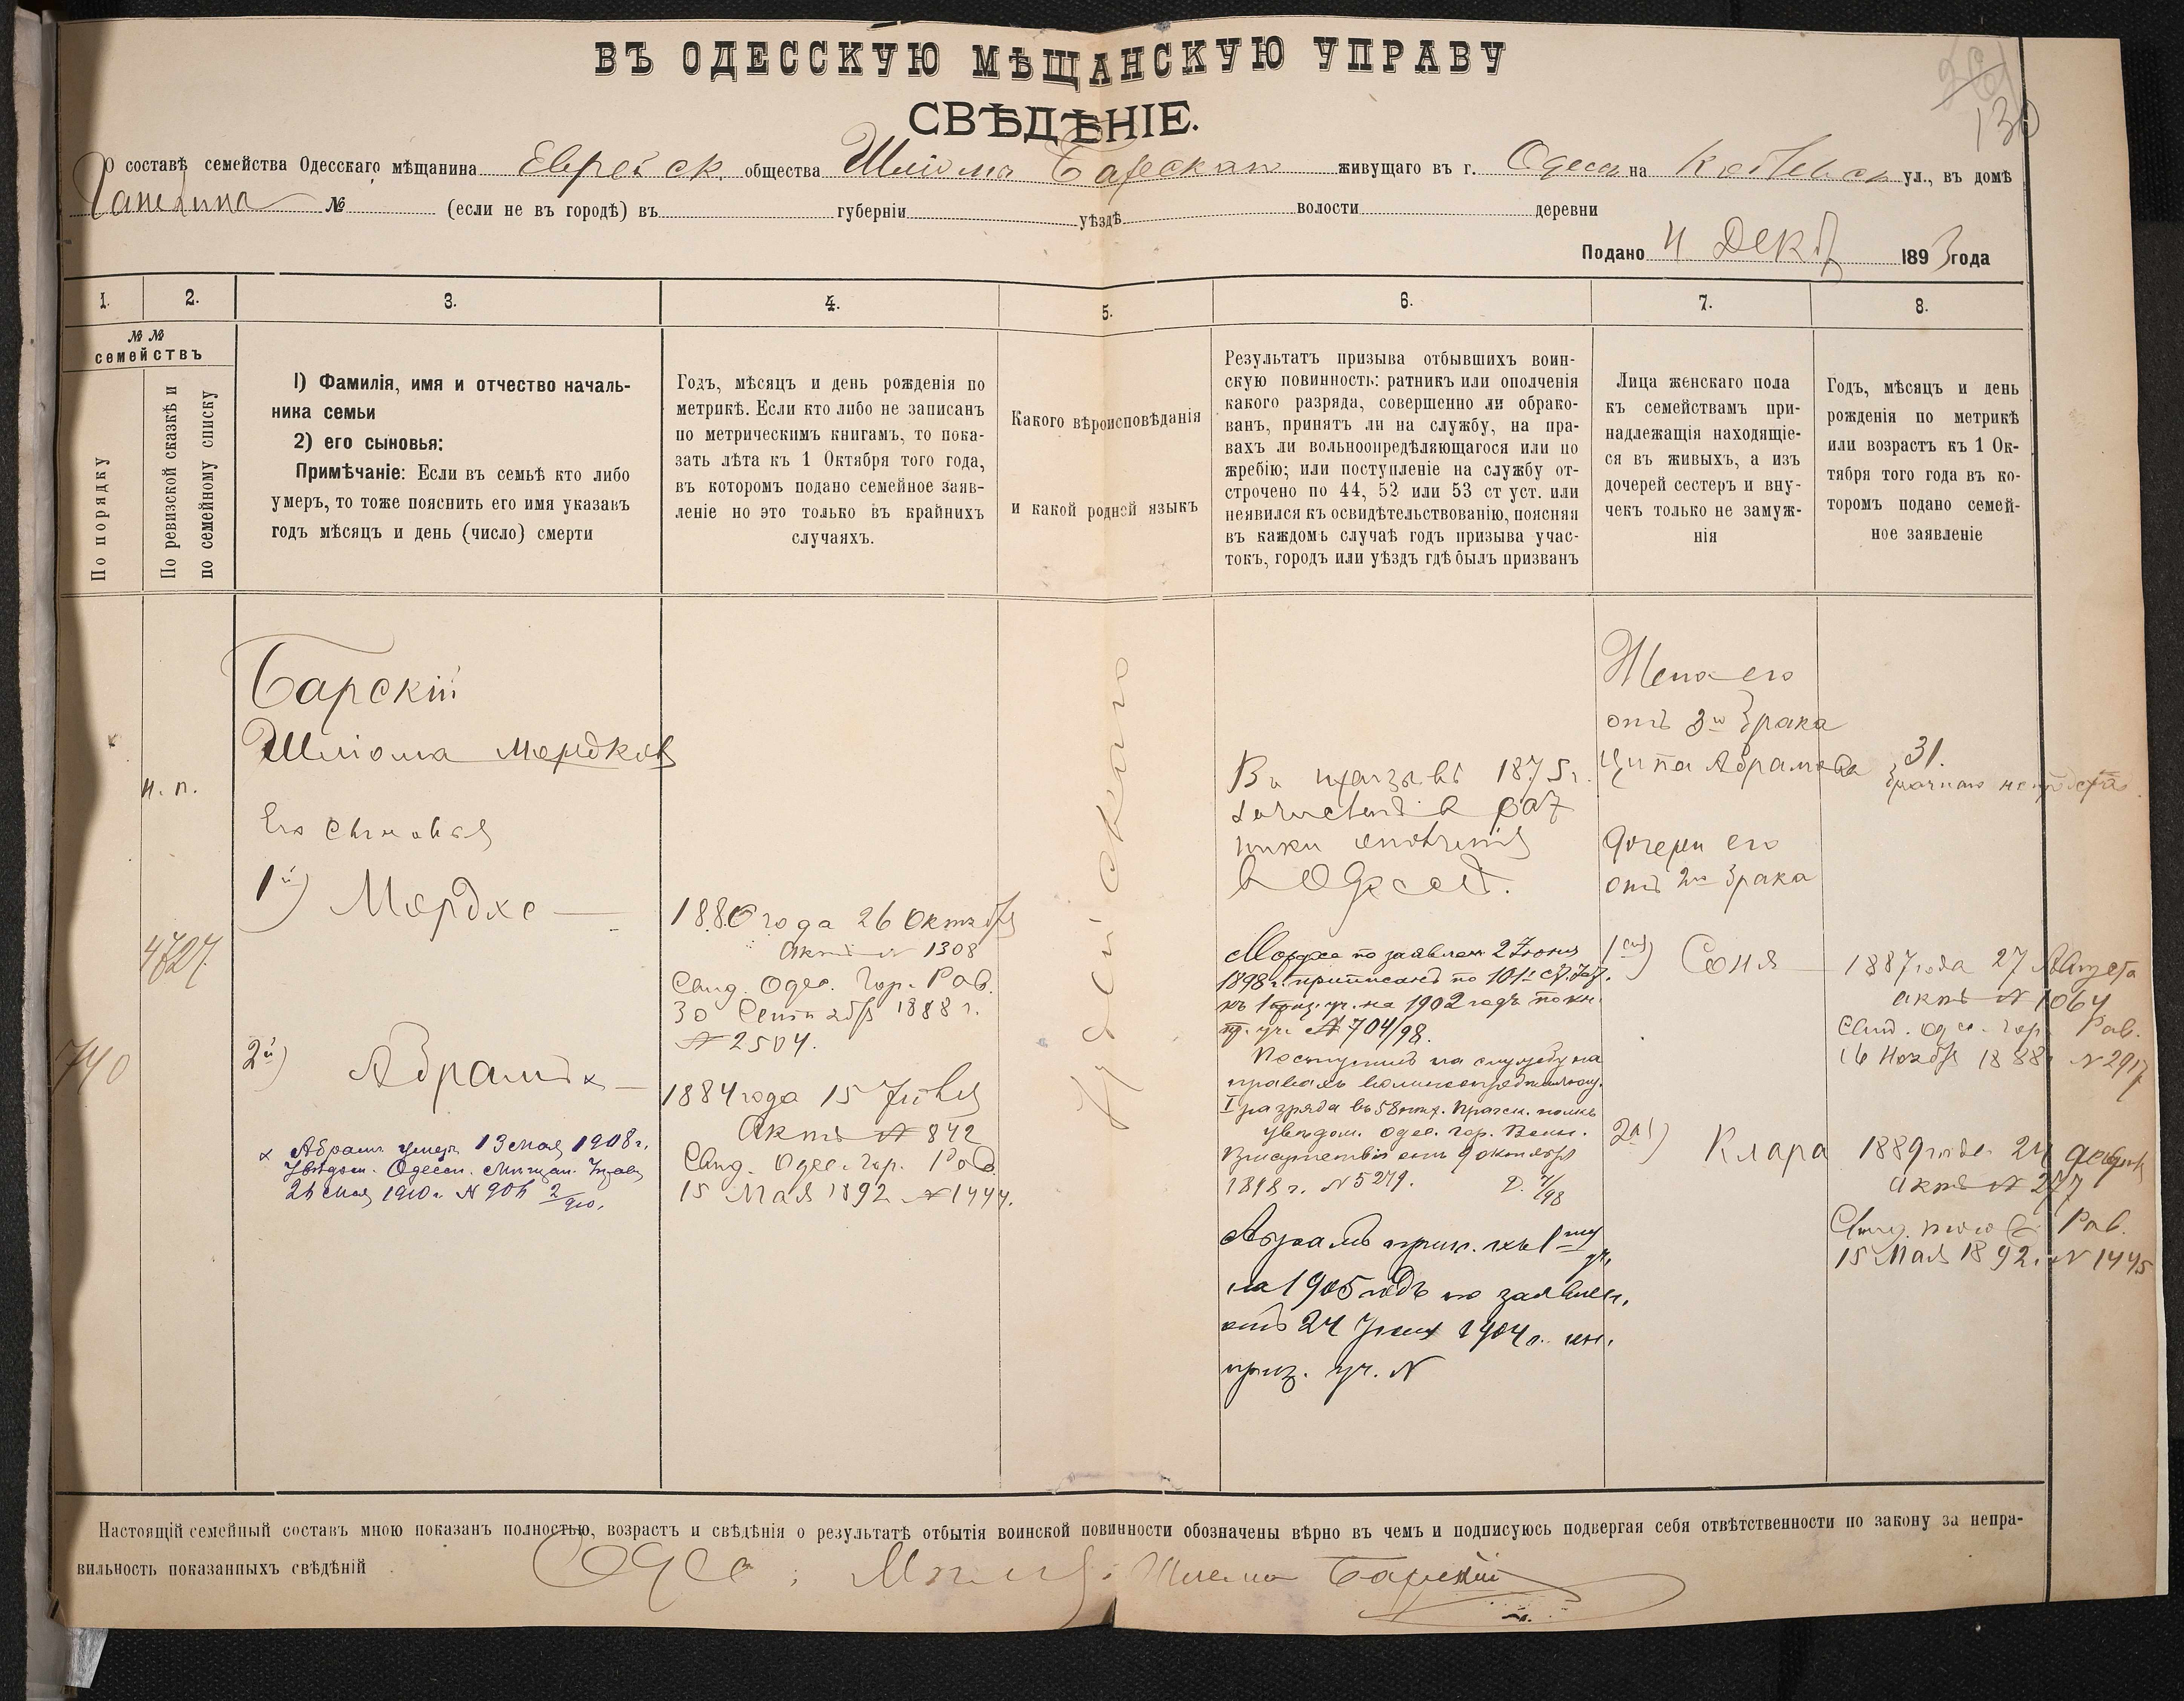 ВЪ ОДЕССКУЮ МѢЩАНСКУЮ УПРАВУ
СВѢДѢНІЕ.
130
О составѣ семейства Одесскаго мѣщанина Еврейск. общества Шліома Барскаго живущаго въ г. Одессѣ на ул., въ домѣ
№ (если не въ городѣ) въ губерніи уѣздѣ волости деревни
Подано 4 Декб 1893 года
1. 2. 3. 4. 5. 6. 7. 8.
№ №
семействъ
По порядку
По ревизской сказкѣ и
по семейному списку
1) Фамилія, имя и отчество началь-
ника семьи
2) его сыновья:
Примѣчаніе: Если въ семьѣ кто либо
умеръ, то тоже пояснить его имя указавъ
годъ мѣсяцъ и день (число) смерти
Годъ, мѣсяцъ и день рожденія по
метрикѣ. Если кто либо не записанъ
по метрическимъ книгамъ, то пока-
зать лѣта къ 1 Октября того года,
въ которомъ подано семейное заяв-
леніе но это только въ крайнихъ
случаяхъ.
Какого вѣроисповѣданія
и какой родной языкъ
Результатъ призыва отбывшихъ воин-
скую повинность: ратникъ или ополченія
какого разряда, совершенно ли обрако-
ванъ, принятъ ли на службу, на пра-
вахъ ли вольноопредѣляющагося или по
жребію; или поступленіе на службу от-
строчено по 44, 52 или 53 ст уст. или
неявился къ освидѣтельствованію, поясняя
въ каждомъ случаѣ годъ призыва учас-
токъ, городъ или уѣздъ гдѣ былъ призванъ
Лица женскаго пола
къ семействамъ при-
надлежащія находящіе-
ся въ живыхъ, а изъ
дочерей сестеръ и вну-
чекъ только не замуж-
нія
Годъ, мѣсяцъ и день
рожденія по метрикѣ
или возрастъ къ 1 Ок-
тября того года въ ко-
торомъ подано семей-
ное заявленіе
740
н. п.
4727
Барскій
Шліома Мордков
Его сыновья
1й) Мордхе
2й) Абрамъ x
x Абрамъ умеръ 13 мая 1908 г.
Увѣдом. Одесск. Мѣщан. Управ.
26 мая 1910 г. N 906 2/910.
1880 года 26 Октября
Актъ N 1308
Свид. Одес. Гор. Рав.
30 Сентября 1888 г.
N 2504.
1884 года 15 Іюля
Актъ N 842
Свид. Одес. Гор. Рав.
15 Мая 1892 N 1444.
Іудейскаго
Въ призывѣ 1875 г.
зачисленъ в рат
ники ополченія
в Одессѣ.
Мордхе по заявлен. 2 Іюня
1898 г. приписанъ по 101 ст. Уст.
къ 1 приз. уч. на 1902 годъ по кн.
пр. уч. N 704/98.
Поступилъ на службу на
правахъ вольноопредѣляющ.
I разряда въ 58 пѣх. Пражск. полкъ
увѣдом. Одес. Гор. Воин.
Присутствія отъ 9 октября
1898 г. N 5279.
Абрамъ прип. къ 1му уч.
на 1905 годъ по заявлен.
отъ 24 1904 г. кн.
приз. уч. N
Жена его
отъ 3го брака
Ципа Абрамова
Дочери его
отъ 2го брака
1ая) Соня
2ая) Клара
31.
1887 года 27 Августа
актъ N 1064
Свид. Одес. гор. Рав.
16 Ноября 1888 г. N 2917
1889 года 24 декабря
актъ N 277
Свид. того Рав.
15 Мая 1892 г. N 1445
Настоящій семейный составъ мною показанъ полностью, возрастъ и свѣдѣнія о результатѣ отбытія воинской повинности обозначены вѣрно въ чемъ и подписуюсь подвергая себя отвѣтственности по закону за непра-
вильность показанныхъ свѣдѣній
Одес. Шлема Барскій